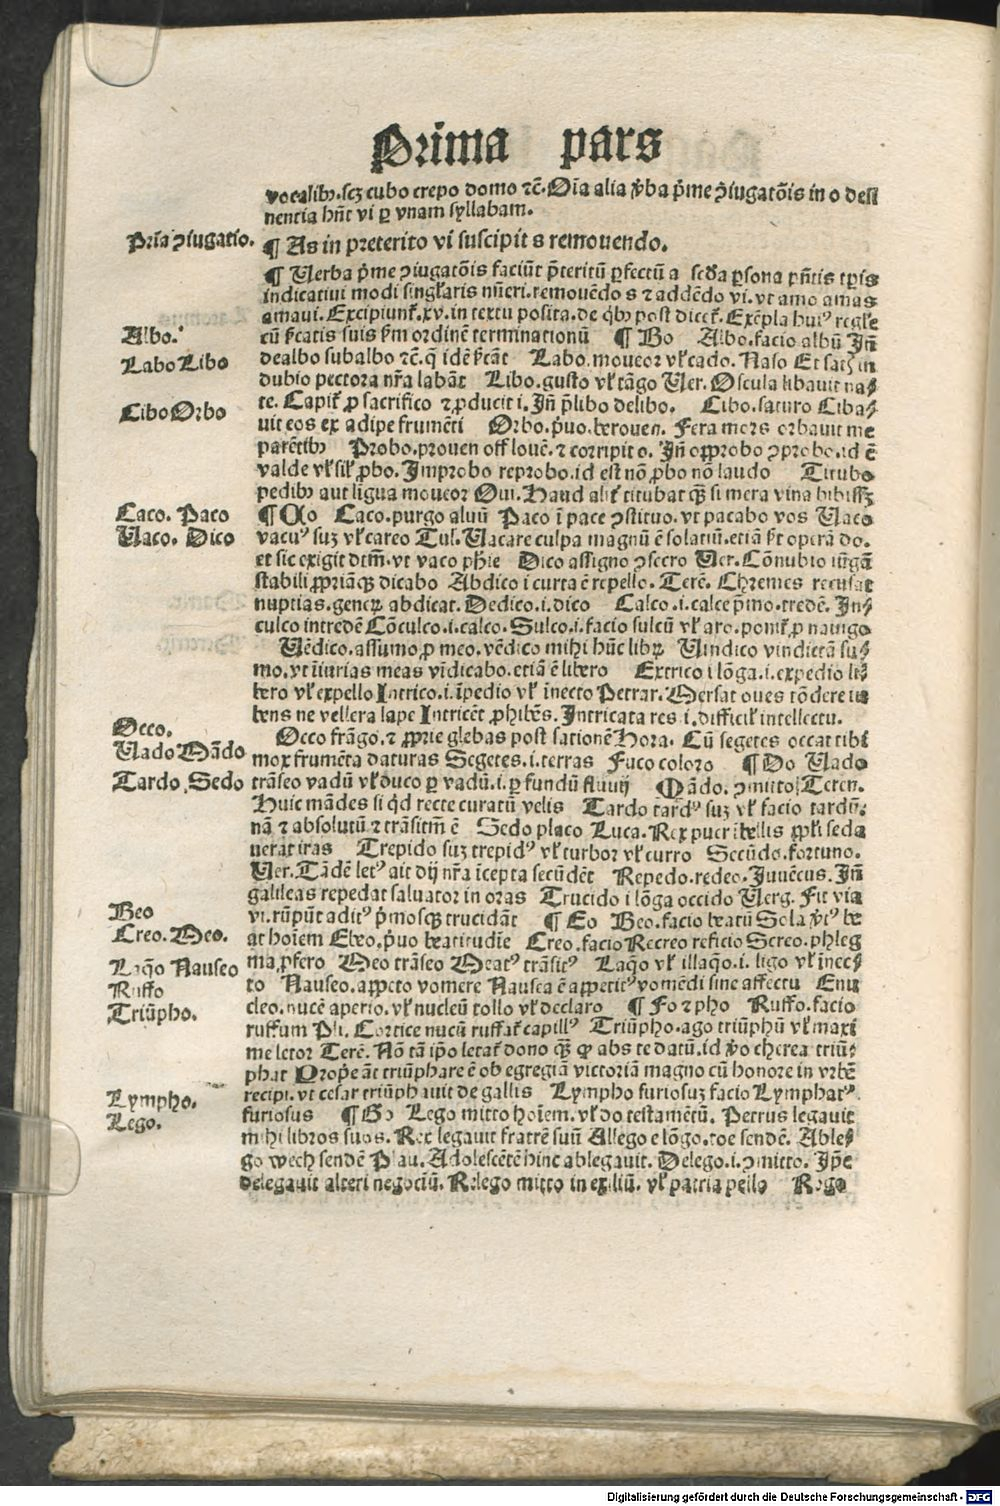 Prima pars
vocalibꝫ.scꝫ cubo crepo domo ⁊c̄. Oīa alia v̓ba p̓me ꝯiugatōis in o desi
nentia hn̄t vi ꝑ vnam syllabam.
Pri̅a ꝯiugatio.
¶ As in preterito vi suscipit s remouendo.
¶ Uerba p̓me ꝯiugatōis faciūt p̄teritū ꝑfectū a scḋa ꝑsona pn̄tis tꝑis
indicatiui modi singl̓aris nūeri.remouēdo s ⁊ addēdo vi.vt amo amas
amaui. Excipiunt̓.xv.in textu posita.de qͥbꝫ post dicet̓. Exēpla huiꝰ regl̓e
Albo.
cū sc̓atis suis sm̓ ordinē terminationū ¶ Bo Albo.facio albū Jn̄
dealbo subalbo ⁊c̄.q̄ idē sc̓āt Labo.moueor vl̓ cado. Naso Et satꝫ in
Labo Libo
dubio pectora nr̄a labāt Libo.gusto vl̓ tāgo Uer. Oscula libauit na⸗
te. Capit̓ ꝓ sacrifico ⁊ ꝓducit i. Jn̄ p̄libo delibo. Cibo.saturo Ciba⸗
Cibo Orbo
uit eos ex adipe frumēti Orbo.p̓uo.berouen. Fera mors orbauit me
parētibꝫ Probo.prouen off louē.⁊ corripit o. Jn̄ opprobo ꝯprobo.id ē
valde vl̓ sil̓ ꝓbo. Improbo reprobo.id est nō ꝓbo nō laudo Titubo
pedibꝫ aut ligua moueor Oui. Haud alit̓ titubat qꝫ̄ si mera vina bibissꝫ
Caco. Paco
¶ Co Caco.purgo aluū Paco ī pace ꝯstituo.vt pacabo vos Uaco
Uaco. Dico
vacuꝰ suꝫ vl̓ careo Tul. Uacare culpa magnū ē solatiū.etiā sc̓t operā do.
et sic exigit dtm̄.vt vaco phīe Dico assigno ꝯsecro Uer. Cōnubio iūgā
stabili ꝓpriāqꝫ dicabo Abdico i curta ē repello. Terē. Chremes recusat
nuptias.generꝫ abdicat. Dedico.i.dico Calco.i.calce p̓mo.tredē. In⸗
culco intredē Cōculco.i.calco. Sulco.i.facio sulcū vl̓ aro.ponit̓ ꝓ nauigo
Uēdico.assumo ꝓ meo.vēdico mihi hūc librꝫ Uindico vindictā su⸗
mo.vt iniurias meas vīdicabo.etiā ē libero Extrico i lōga.i.expedio li⸗
bero vl̓ expello Intrico.i.īpedio vl̓ inecto Petrar. Uersat oues tōdere iu
bens ne vellera sape Intricēt ꝓhibēs. Intricata res i.difficil̓ intellectu.
Occo.
Occo frāgo.⁊ ꝓprie glebas post sationē Hora. Cū segetes occat tibi
Uado Mādo
mox frumēta daturas Segetes.i.terras Fuco coloro ¶ Do Uado
Tardo Sedo
trāseo vadū vl̓ duco ꝑ vadū.i.ꝑ fundū fluuij Mādo.ꝯmitto Teren.
Huic mādes si qd̓ recte curatū velis Tardo tardꝰ suꝫ vl̓ facio tardū.
nā ⁊ absolutū ⁊ trāsitm̄ ē Sedo placo Luca. Rex pueri bellis ꝓpl̓i seda
uerat iras Trepido suꝫ trepidꝰ vl̓ turbor vl̓ curro Secūdo.fortuno.
Uer. Tādē letꝰ ait dij nr̄a īcepta secūdēt Repedo.redeo. Juuēcus. Jn̄
galileas repedat saluator in oras Trucido i lōga occido Uerg. Fit via
vi.rūpūt aditꝰ p̓mosqꝫ trucidāt ¶ Eo Beo.facio beatū Sola v̓tꝰ be
Beo
at hoīem Ebeo.p̓uo beatitudīe Creo.facio Recreo reficio Screo.phleg
Creo. Meo.
ma ꝓfero Meo trāseo Meatꝰ trāsitꝰ Laq̄o vl̓ illaq̄o.i.ligo vl̓ inec⸗
Laq̄o Nauseo
to Nauseo.appeto vomere Nausea ē appetitꝰ vomēdi sine affectu Enu
Ruffo
cleo.nucē aperio.vl̓ nucleū tollo vl̓ declaro ¶ Fo ⁊ pho Ruffo.facio
Triūpho.
ruffum Pli. Cortice nucū ruffat̓ capillꝰ Triūpho.ago triūphū vl̓ maxi
me letor Terē. Nō tā ip̄o letat̓ dono qꝫ̄ ꝙ abs te datū.id v̓o cherea triū⸗
phat Prop̓e āt triūphare ē ob egregiā victoriā magno cū honore in vrbē
recipi.vt cesar triūphauit de gallis Lympho furiosuꝫ facio Lymphatꝰ
Lympho.
furiosus ¶ Go Lego mitto hoīem.vl̓ do testamētū. Petrus legauit
Lego.
mihi libros suos. Rex legauit fratrē suū Allego e lōgo.toe sendē. Able⸗
go wech sendē Plau. Adolescētē hinc ablegauit. Delego.i.ꝯmitto. Jp̄e
delegauit alteri negociū. Relego mitto in exiliū.vl̓ patria pello Rogo
Digitalisierung gefördert durch die Deutsche Forschungsgemeinschaft - DFG